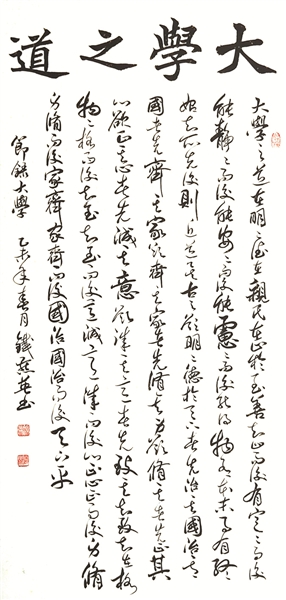 大學之道
大學之道在明明德在親民在止於至善知止而後有定定而後
能靜靜而後能安安而後能慮慮而後能得物有本末事有終
始知所先後則近道矣古之欲明明德於天下者先治其國治其
國者先齊其家欲齊其家者先脩其身欲脩其身者先正其
心欲正其心者先誠其意欲誠其意者先致其知致知在格
物物格而後知至知至而後意誠意誠而後心正心正而後身脩
身脩而後家齊家齊而後國治國治而後天下平
節錄大學 乙未年春月 鐵英書